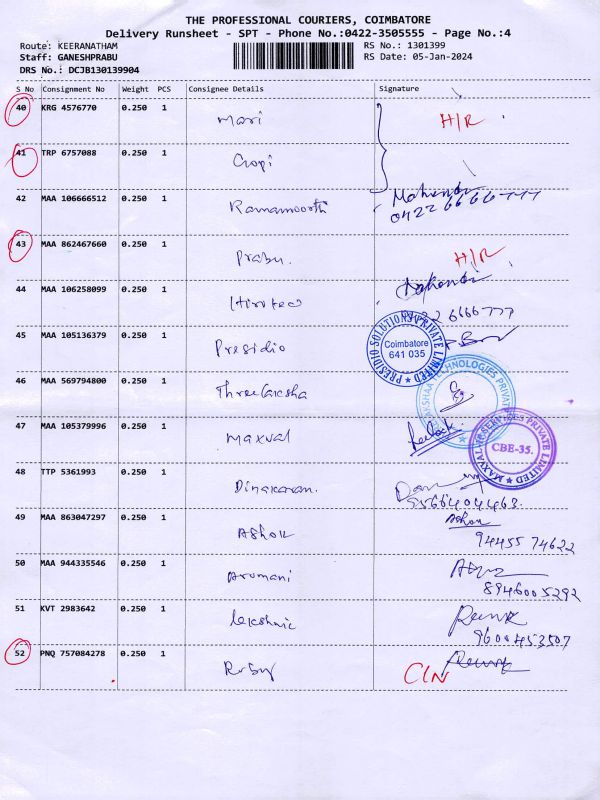 THE PROFESSIONAL COURIERS, COIMBATORE
Delivery Runsheet - SPT - Phone No.:0422-3505555 - Page No.:4
Route: KEERANATHAM RS No.: 1301399
Staff: GANESHPRABU RS Date: 05-Jan-2024
DRS No.: DCJB130139904
S No Consignment No Weight PCS Consignee Details Signature
40 KRG 4576770 0.250 1 Mari H/R
41 TRP 6757088 0.250 1 Gopi
42 MAA 106666512 0.250 1 Ramamoorthi Mahendi
0422 6666777
43 MAA 862467660 0.250 1 Prabu. H/R
44 MAA 106258099 0.250 1 Hirotec
6666777
45 MAA 105136379 0.250 1 Presidio
PRESIDIO SOLUTIONS PRIVATE LIMITED
Coimbatore
641 035
46 MAA 569794800 0.250 1 Threelaksha
TECHNOLOGIES PRIVATE
47 MAA 105379996 0.250 1 Maxval
SERVICES PRIVATE LIMITED
CBE-35.
48 TTP 5361993 0.250 1 Dinakaran.
9566404463.
49 MAA 863047297 0.250 1 Ashok Ashok
94455 74622
50 MAA 944335546 0.250 1 Arumani
8946005292
51 KVT 2983642 0.250 1 lakshmi
9600453507
52 PNQ 757084278 0.250 1 Ruby C/N